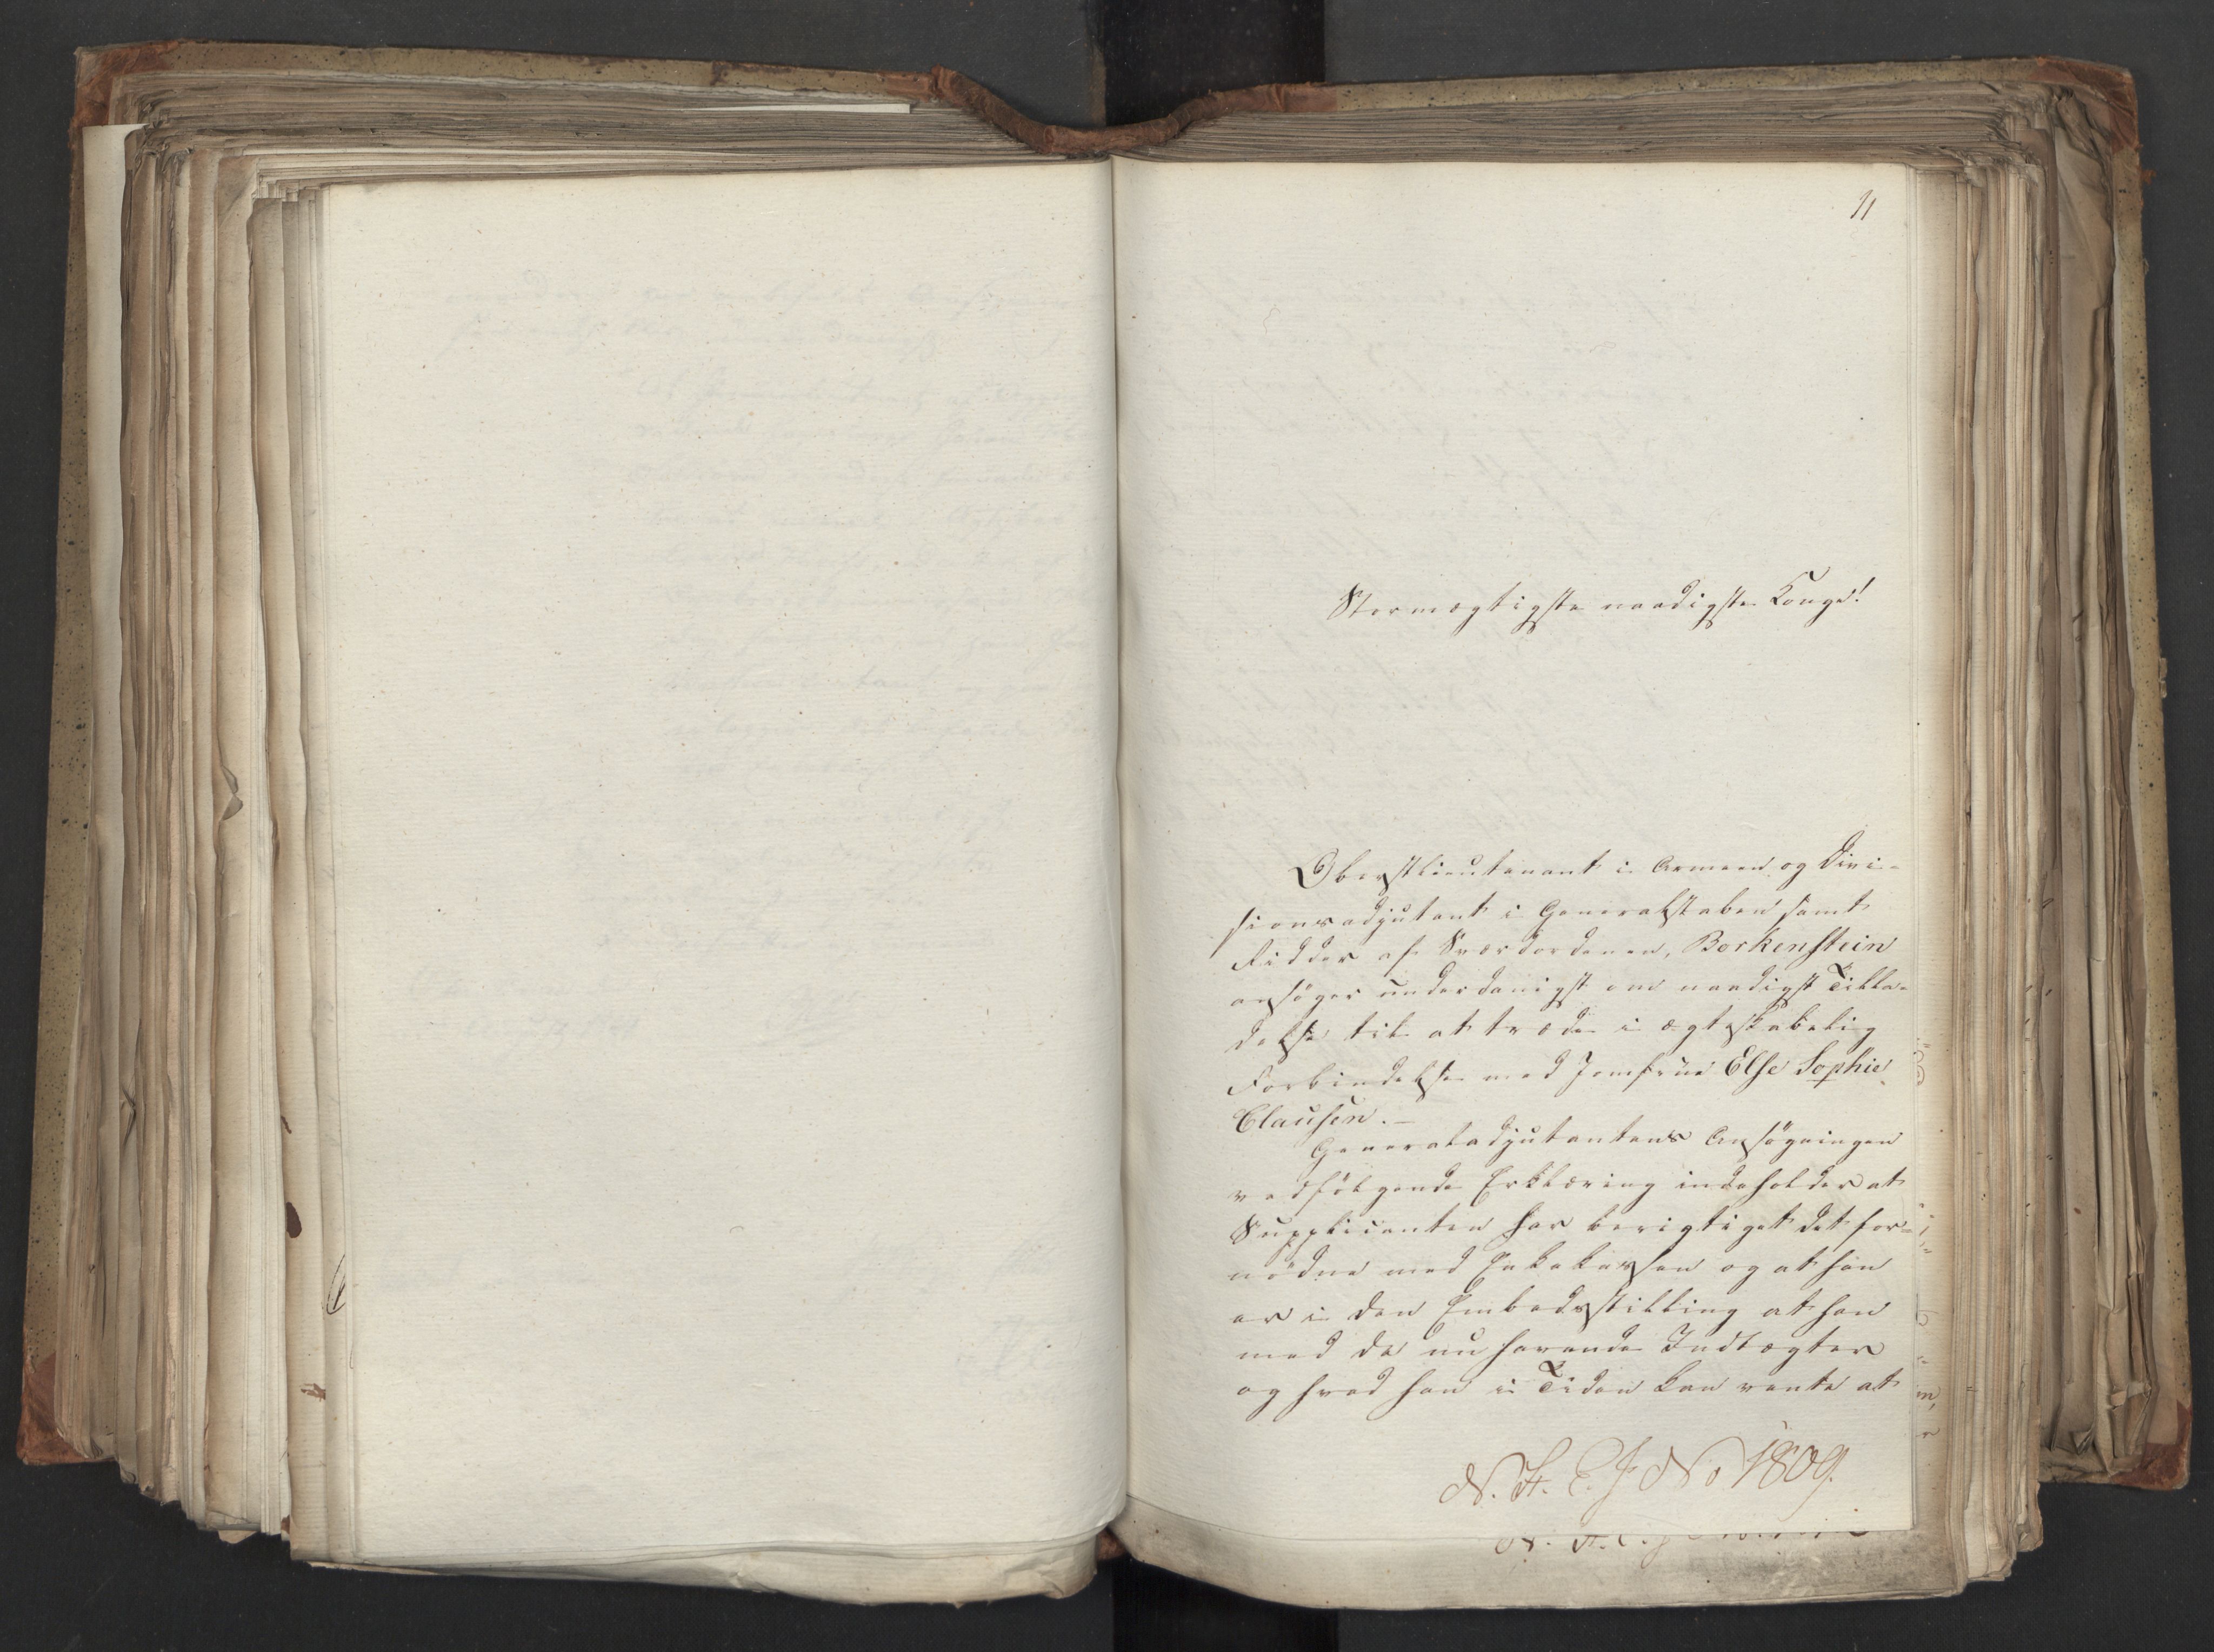 11
Stormægtigste naadigste Konge!
Oberstlieutenant i Armeen og Divi-
sionsadjutant i Generalstaben samt
Ridder af Sværdordenen, Borkenstein
ansöger underdanigst om naadigst Tilla-
delse til at træde i ægteskabelig
Forbindelse med Jomfrue Else Sophie
Clausen. –
Generaladjutantens Ansögningen
vedfölgende Erklæring indeholder at
Supplicanten har berigtiget det for-
nödne med Enkekassen og at han
er i den Embedsstilling at han
med de nu havende Indtægter
og hvad han i Tiden kan vente at
N. H. E. J No 1809.